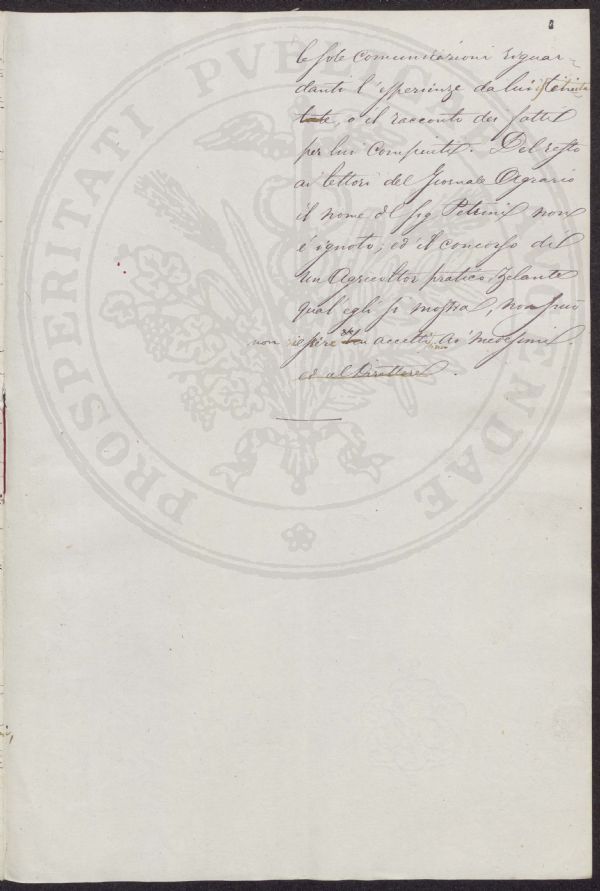 le sole comunicazioni riguar-
danti l'esperienze da lui
tate, o il racconto dei fatti
per lui compiuti. Del resto
ai lettori del Giornale Agrario
il nome del Sig Petrini non
è ignoto; ed il concorso di
un Agricoltor pratico, zelante
qual egli si mostra, non può
non essere accetto ai medesimi.
ed al Direttore.
PROSPERITATI PVBLICAE AVGENDAE